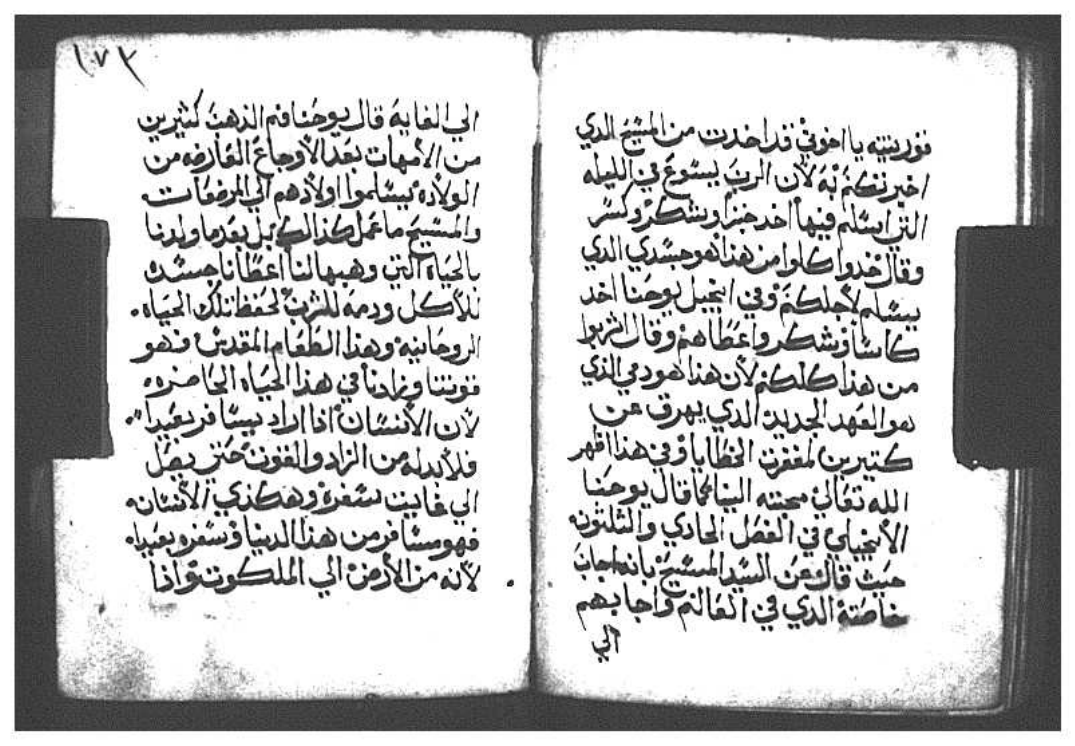 قورنتيه يا اخوتي قد اخدت من المسيح الدي
اخبرتكم به لان الرب يسوع في الليله
التي اسلم فيها اخد خبزا وشكر وكسر
وقال خدوا كلوا من هذا هو جسدي الدي
يسلم لاجلكم وفي انجيل يوحنا اخد
كاسا وشكر واعطاهم وقال اشربوا
من هذا كلكم لان هذا هو دمي الذي
هو العهد الجديد الدي يهرق عن
كتيرين لمغفرت الخطايا وفي هدا اظهر
الله تعالي محبته الينا كما قال يوحنا
الانجيلي في الفصل الحادي والتلتون
حيث قال عن السيد المسيح بانه اجاب
خاصته الدي في العالم واجابهم
الي
١٧٣
الي الغايه قال يوحنا فم الذهب كثيرين
من الامهات بعد الاوجاع العارضه من
الولاده يسلموا اولادهم الي المرضعات
والمسيح ما عمل كذالك بل بعد ما ولدنا
بالحياه التي وهبها لنا اعطانا جسده
للاكل ودمه للشرب لحفظ تلك الحياه
الروحانيه وهذا الطعام المقدس فهو
قوتنا وزادنا في هذا الحياه الحاضره
لان الانسان اذا اراد يسافر بعيدا
فلابد له من الزاد والقوت حتي يصل
الي غايت سفره وهكذي الانسان
فهو مسافر من هذا الدنيا وسفره بعيدا
لانه من الارض الي الملكوت واذا